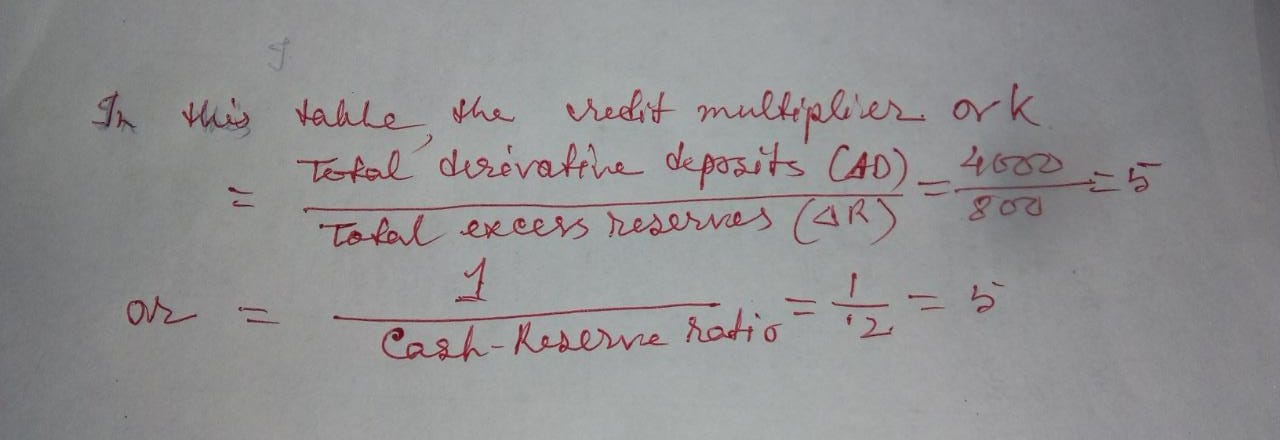 In this table, the credit multiplier or k
= Total derivative deposits (ΔD) / Total excess reserves (ΔR) = 4000 / 800 = 5
or = 1 / Cash-Reserve ratio = 1 / .2 = 5